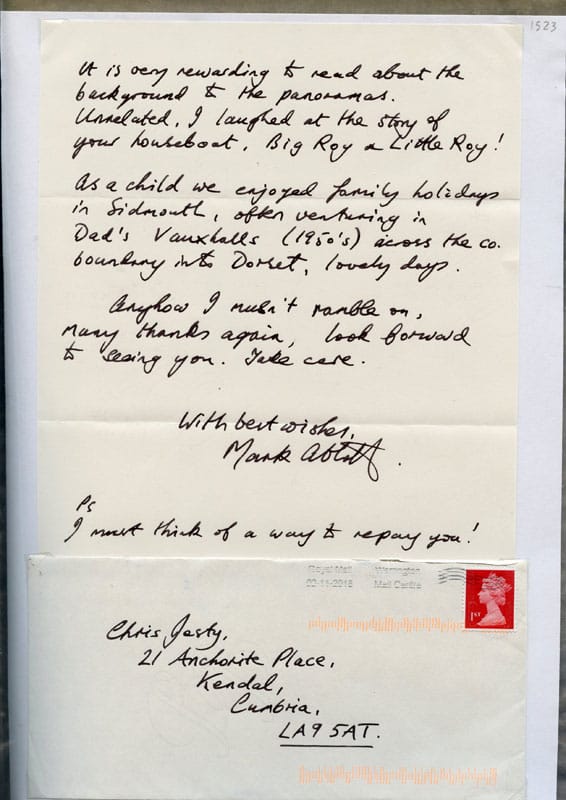 1523
It is very rewarding to read about the
background to the panoramas.
Unrelated, I laughed at the story of
your houseboat, Big Roy & Little Roy!
As a child we enjoyed family holidays
in Sidmouth, often venturing in
Dad's Vauxhalls (1950's) across the co.
boundary into Dorset, lovely days.
Anyhow I musn't ramble on,
many thanks again, look forward
to seeing you. Take care.
With best wishes,
Mark
Ps
I must think of a way to repay you!
Royal Mail Warrington
02-11-2018 Mail Centre
1ST
Chris Jesty,
21 Anchorite Place,
Kendal,
Cumbria,
LA9 5AT.